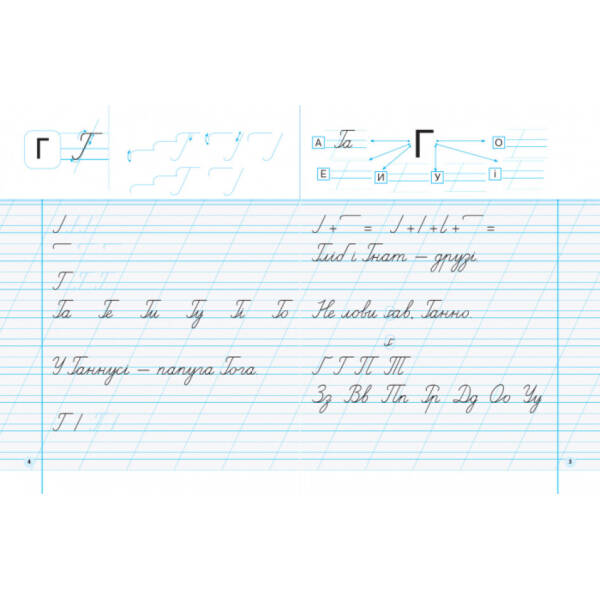 Г Г
Г
Га Ге Ги Гу Гі Го
У Ганнусі — папуга Гога.
Г
4
А Га Г О
Е И У І
Гліб і Гнат — друзі.
Не лови ґав, Ганно.
Г Г П Т
Зз Вв Пп Гг Дд Оо Уу